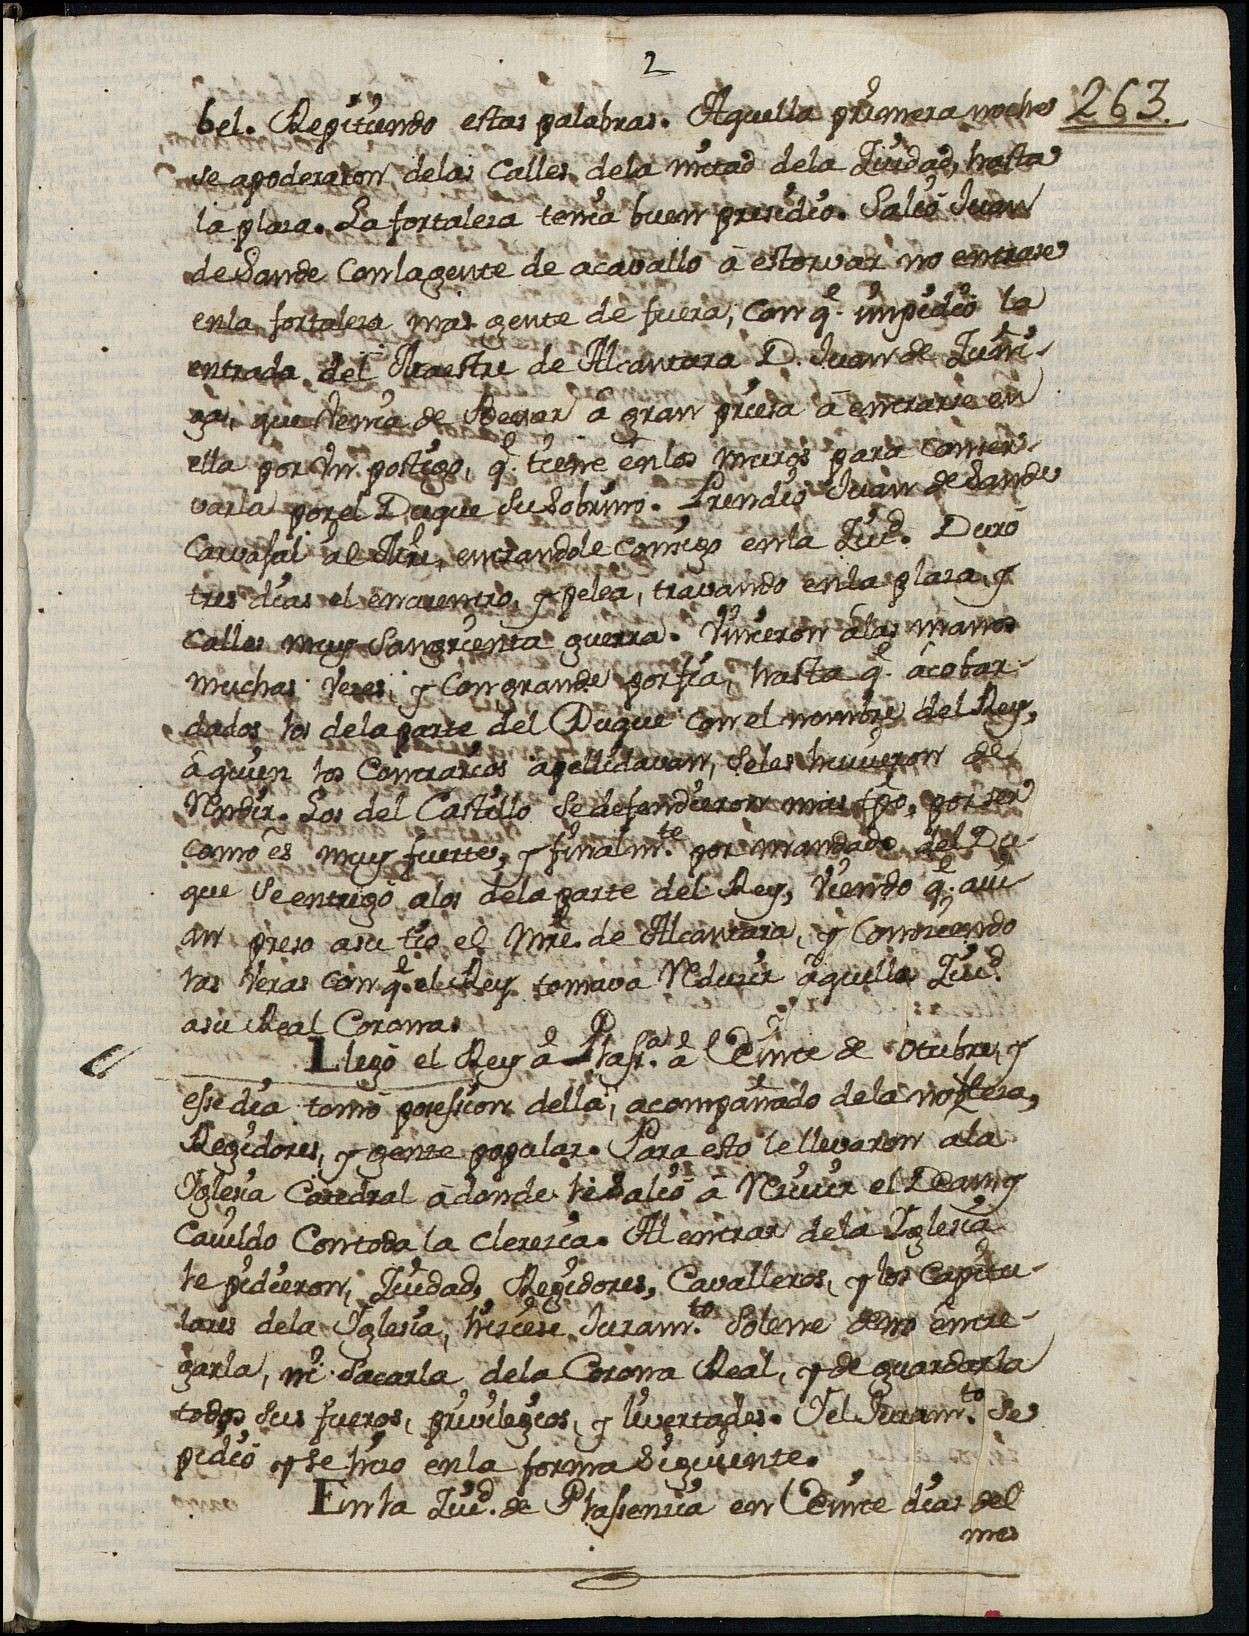 2
263.
bel. Repitiendo estas palabras. Aquella primera noche
se apoderaron delas Calles dela mitad dela Ziudad, hasta
la plaza. La fortaleza tenia buen presidio. Salió Juan
de Sande con la gente de acavallo á estorvar no entrase
enla fortaleza mas gente de fuera, con q.e impidió la
entrada del Maestre de Alcantara D. Juan de Zuñi-
ga, que venia de Bexar á gran priesa á entrarse en
ella por vn postigo, q.e tiene enlos muros para conser-
varla por el Duque Su Sobrino. Prendió Juan de Sande
Carvajal al Mre, entrandole consigo enla Ziu.d Duró
tres dias el encuentro, y pelea, travando enla plaza, y
calles muy Sangrienta guerra. Vinieron álas manos
muchas vezes, y con grande porfia, hasta q.e acobar-
dados los dela parte del Duque con el nombre del Rey,
á quien los Contrarios apellidavan, Seles huvieron de
Rendir. Los del Castillo Se defendieron mas tpo, por ser
como es muy fuerte, y finalm.te por mandado del Du-
que Se entregó alos dela parte del Rey, viendo q.e avi-
an preso asu tio el Mre. de Alcantara, y conociendo
las veras con q.e el Rey tomava Reduzir áquella Ziu.d
asu Real Corona.
Llegó el Rey á Plas.a á Veinte de Otubre, y
esse dia tomó posesion della, acompañado dela nobleza,
Regidores, y gente popular. Para esto le llevaron ala
Iglesia Catedral á donde le Salió á Recivir el Dean y
Cavildo Con toda la Clerezia. Al entrar dela Iglesia
le pidieron, Ziudad, Regidores, Cavalleros, y los Capitu-
lares dela Iglesia, hiziese Juram.to Solene deno entre-
garla, ni Sacarla dela Corona Real, y de guardarla
todos Sus fueros, privilegios, y livertades. Y el Juram.to Se
pidió y se hizo enla forma Siguiente.
En la Ziu.d de Plassencia en Veinte dias del
mes